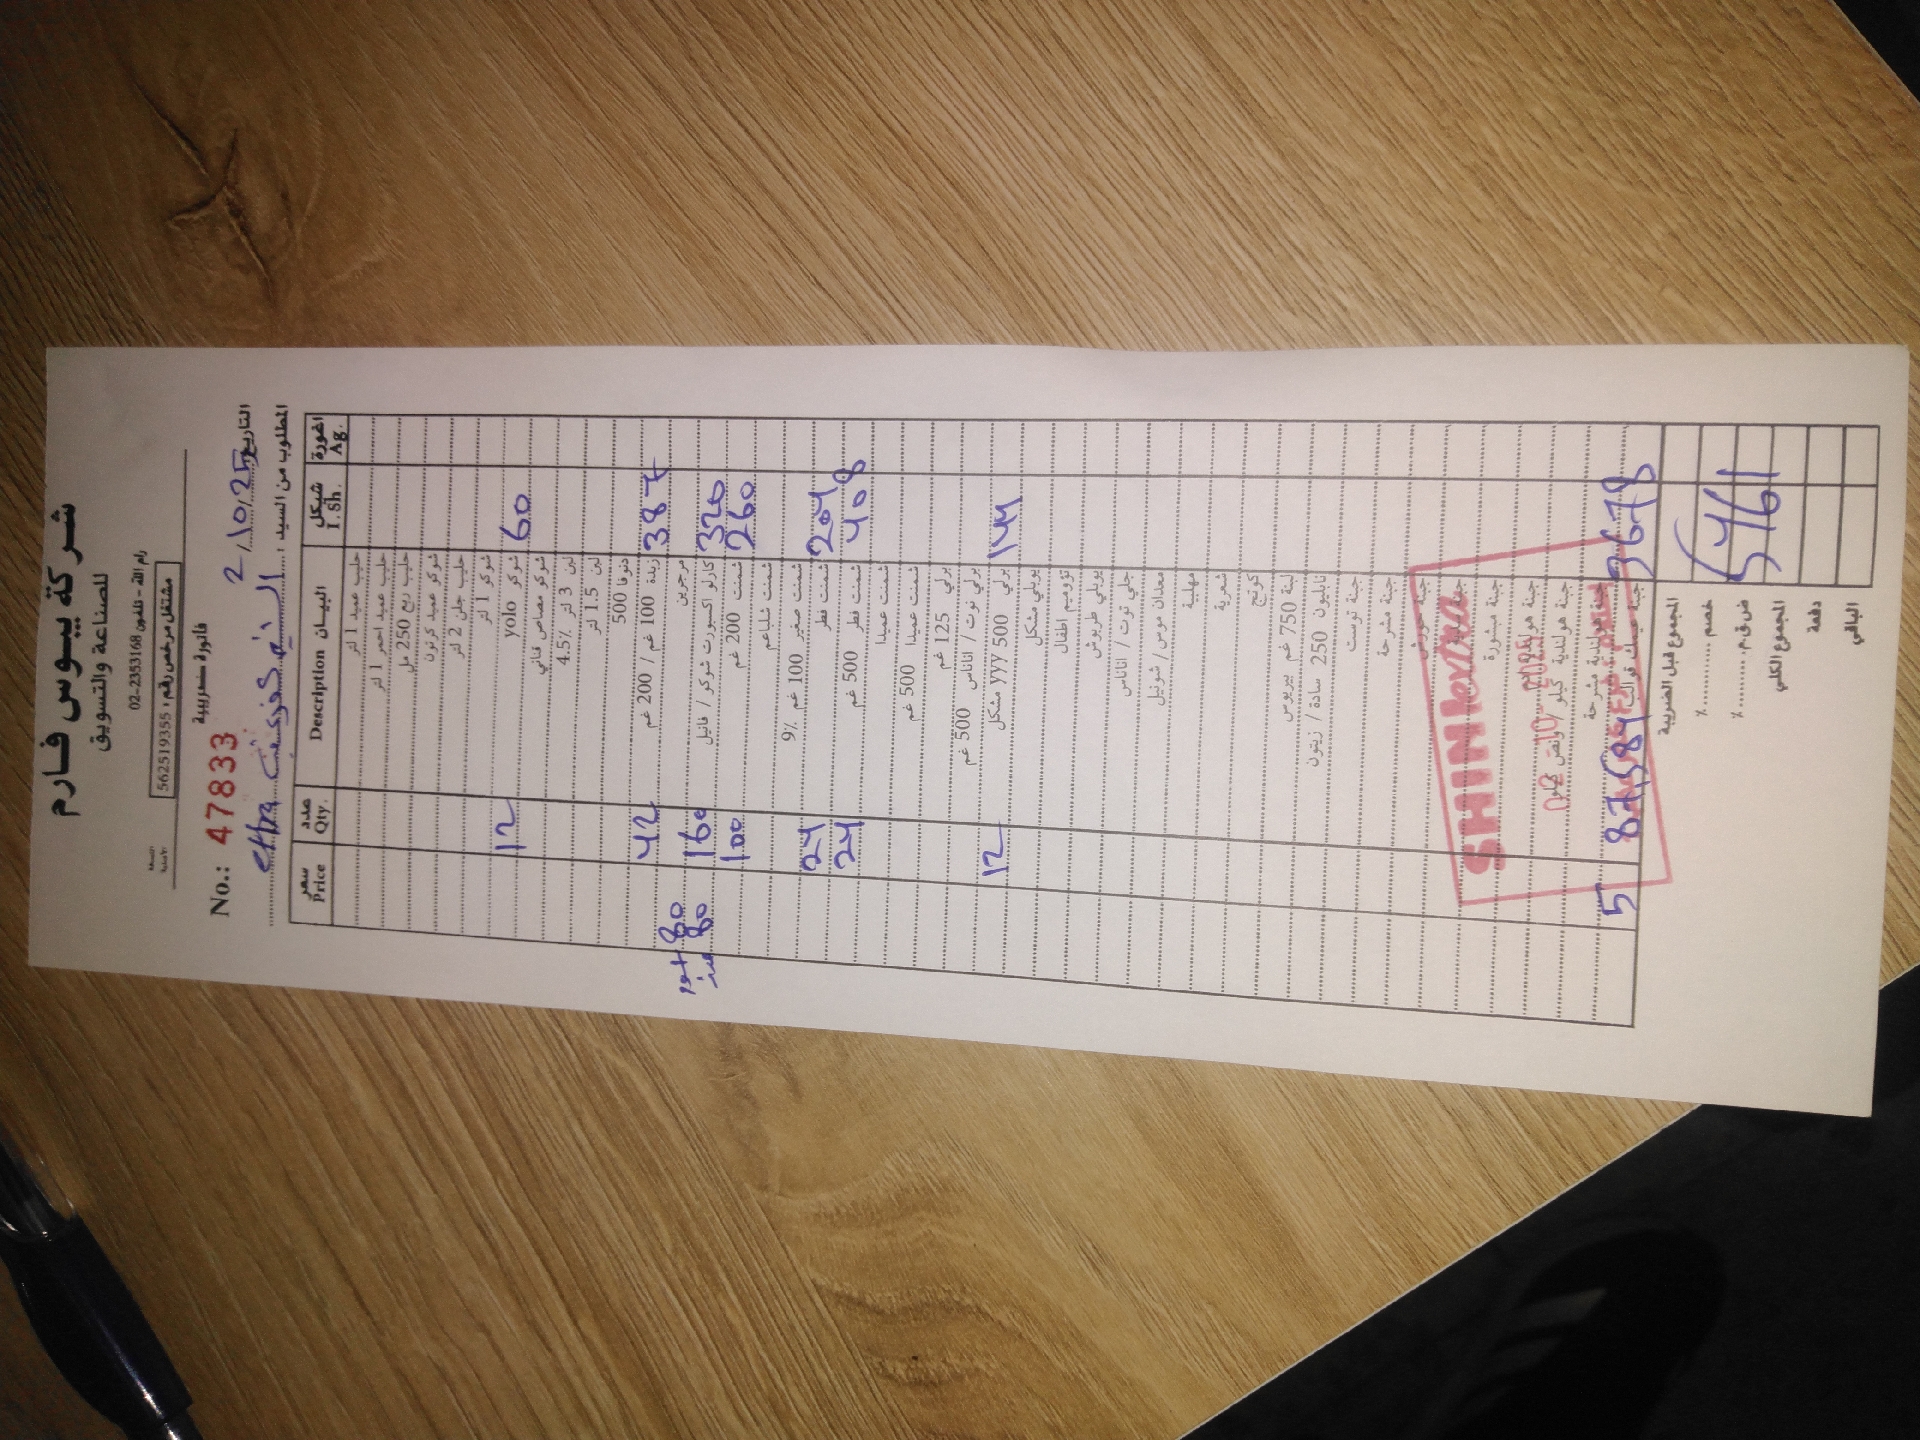 شركة بيوس فارم
للصناعة والتسويق
رام الله - تلفون 02-2353168
مشتغل مرخص رقم: 562519355
فاتورة ضريبية
No.: 47833
التاريخ 2/10/25
المطلوب من السيد: extra
سعر Price عدد Qty. البيــان Description شيكل I. Sh. اغورة Ag.
حليب عميد 1 لتر
حليب عميد احمر 1 لتر
حليب ربع 250 مل
شوكو عميد كرتون
حليب جلن 2 لتر
شوكو 1 لتر
12 شوكو yolo 60
شوكو مصاص قناني
لبن 3 لتر 4.5%
لبن 1.5 لتر
دنوفا 500
42 زبدة 100 غم / 200 غم 387
مرجرين
80
80 160 كارلو اكسبورت شوكو / فانيل 320
100 شمنت 200 غم 260
شمنت
شمنت صغير 100 غم 9%
24 شمنت فطر 204
24 شمنت فطر 500 غم 408
شمنت عميدا
شمنت عميدا 500 غم
برلي 125 غم
برلي توت / اناناس 500 غم
12 برلي 500 yyy مشكل 144
يوبلي مشكل
تؤوميم اطفال
يوبلي طربوش
جلي توت / اناناس
معدان موس / شونيل
مهلبية
شعرية
كوتيج
لبنة 750 غم بيربوس
نابليون 250 سادة / زيتون
جبنة توست
جبنة مشرحة
جبنة
جبنة
جبنة مبشورة
جبنة
جبنة هولندية كيلو / ونص كيلو
جبنة هولندية مشرحة
5 87,584 جبنة عيمك 3678
SHINI extra
02-10-2025
المجموع قبل الضريبة
خصم ........... ٪
ض.ق.م. ........... ٪ 5461
المجموع الكلي
دفعة
الباقي